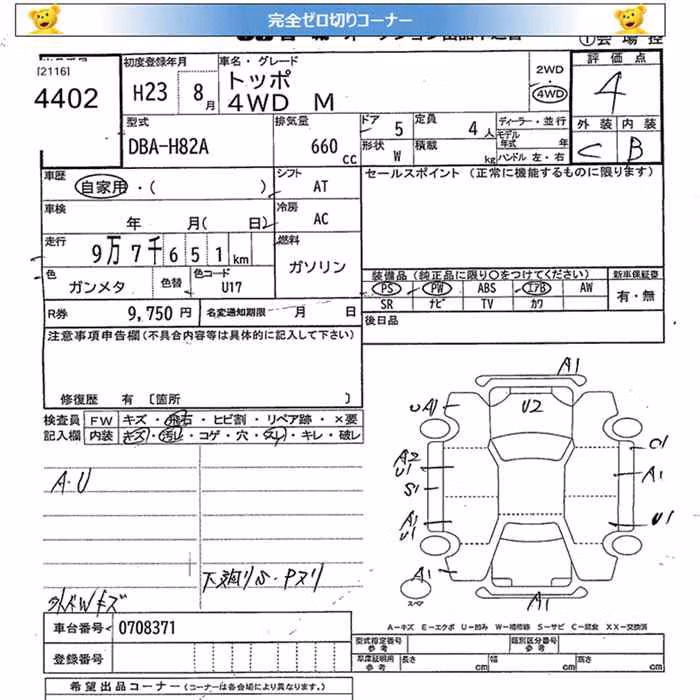 完全ゼロ切りコーナー
[2116]
4402
初度登録年月
H23 8月
車名・グレード
トッポ
4WD M
2WD
・
4WD
評価点
4
型式
DBA-H82A
排気量
660 cc
ドア 5
定員 4人
形状 W
積載 kg
ディーラー・並行
モデル年式 年
ハンドル 左・右
外装 内装
C B
車歴
自家用・( )
シフト
AT
セールスポイント (正常に機能するものに限ります)
車検
年 月( 日)
冷房
AC
走行
9万7千651km
燃料
ガソリン
色
ガンメタ
色替
色コード
U17
装備品 (純正品に限り○をつけてください)
PS PW ABS エアB AW
SR ナビ TV カワ
新車保証書
有・無
R券 9,750円
名変通知期限 月 日
後日品
注意事項申告欄(不具合内容等は具体的に記入して下さい)
修復歴 有 〔箇所 〕
検査員
記入欄
FW キズ・飛石・ヒビ割・リペア跡・×要
内装 キズ・汚レ・コゲ・穴・スレ・キレ・破レ
A・U
A1
U2
A2
U1
S1
A1
U1
A1
C1
A1
U1
スペア
A1
A-キズ E-エクボ U-凹み W-補修跡 S-サビ C-腐食 XX-交換済
車台番号 0708371
登録番号
型式指定番号
参考
類別区分番号
参考
車庫証明用
参考
長さ cm
幅 cm
高さ cm
希望出品コーナー (コーナーは各会場により異なります。)